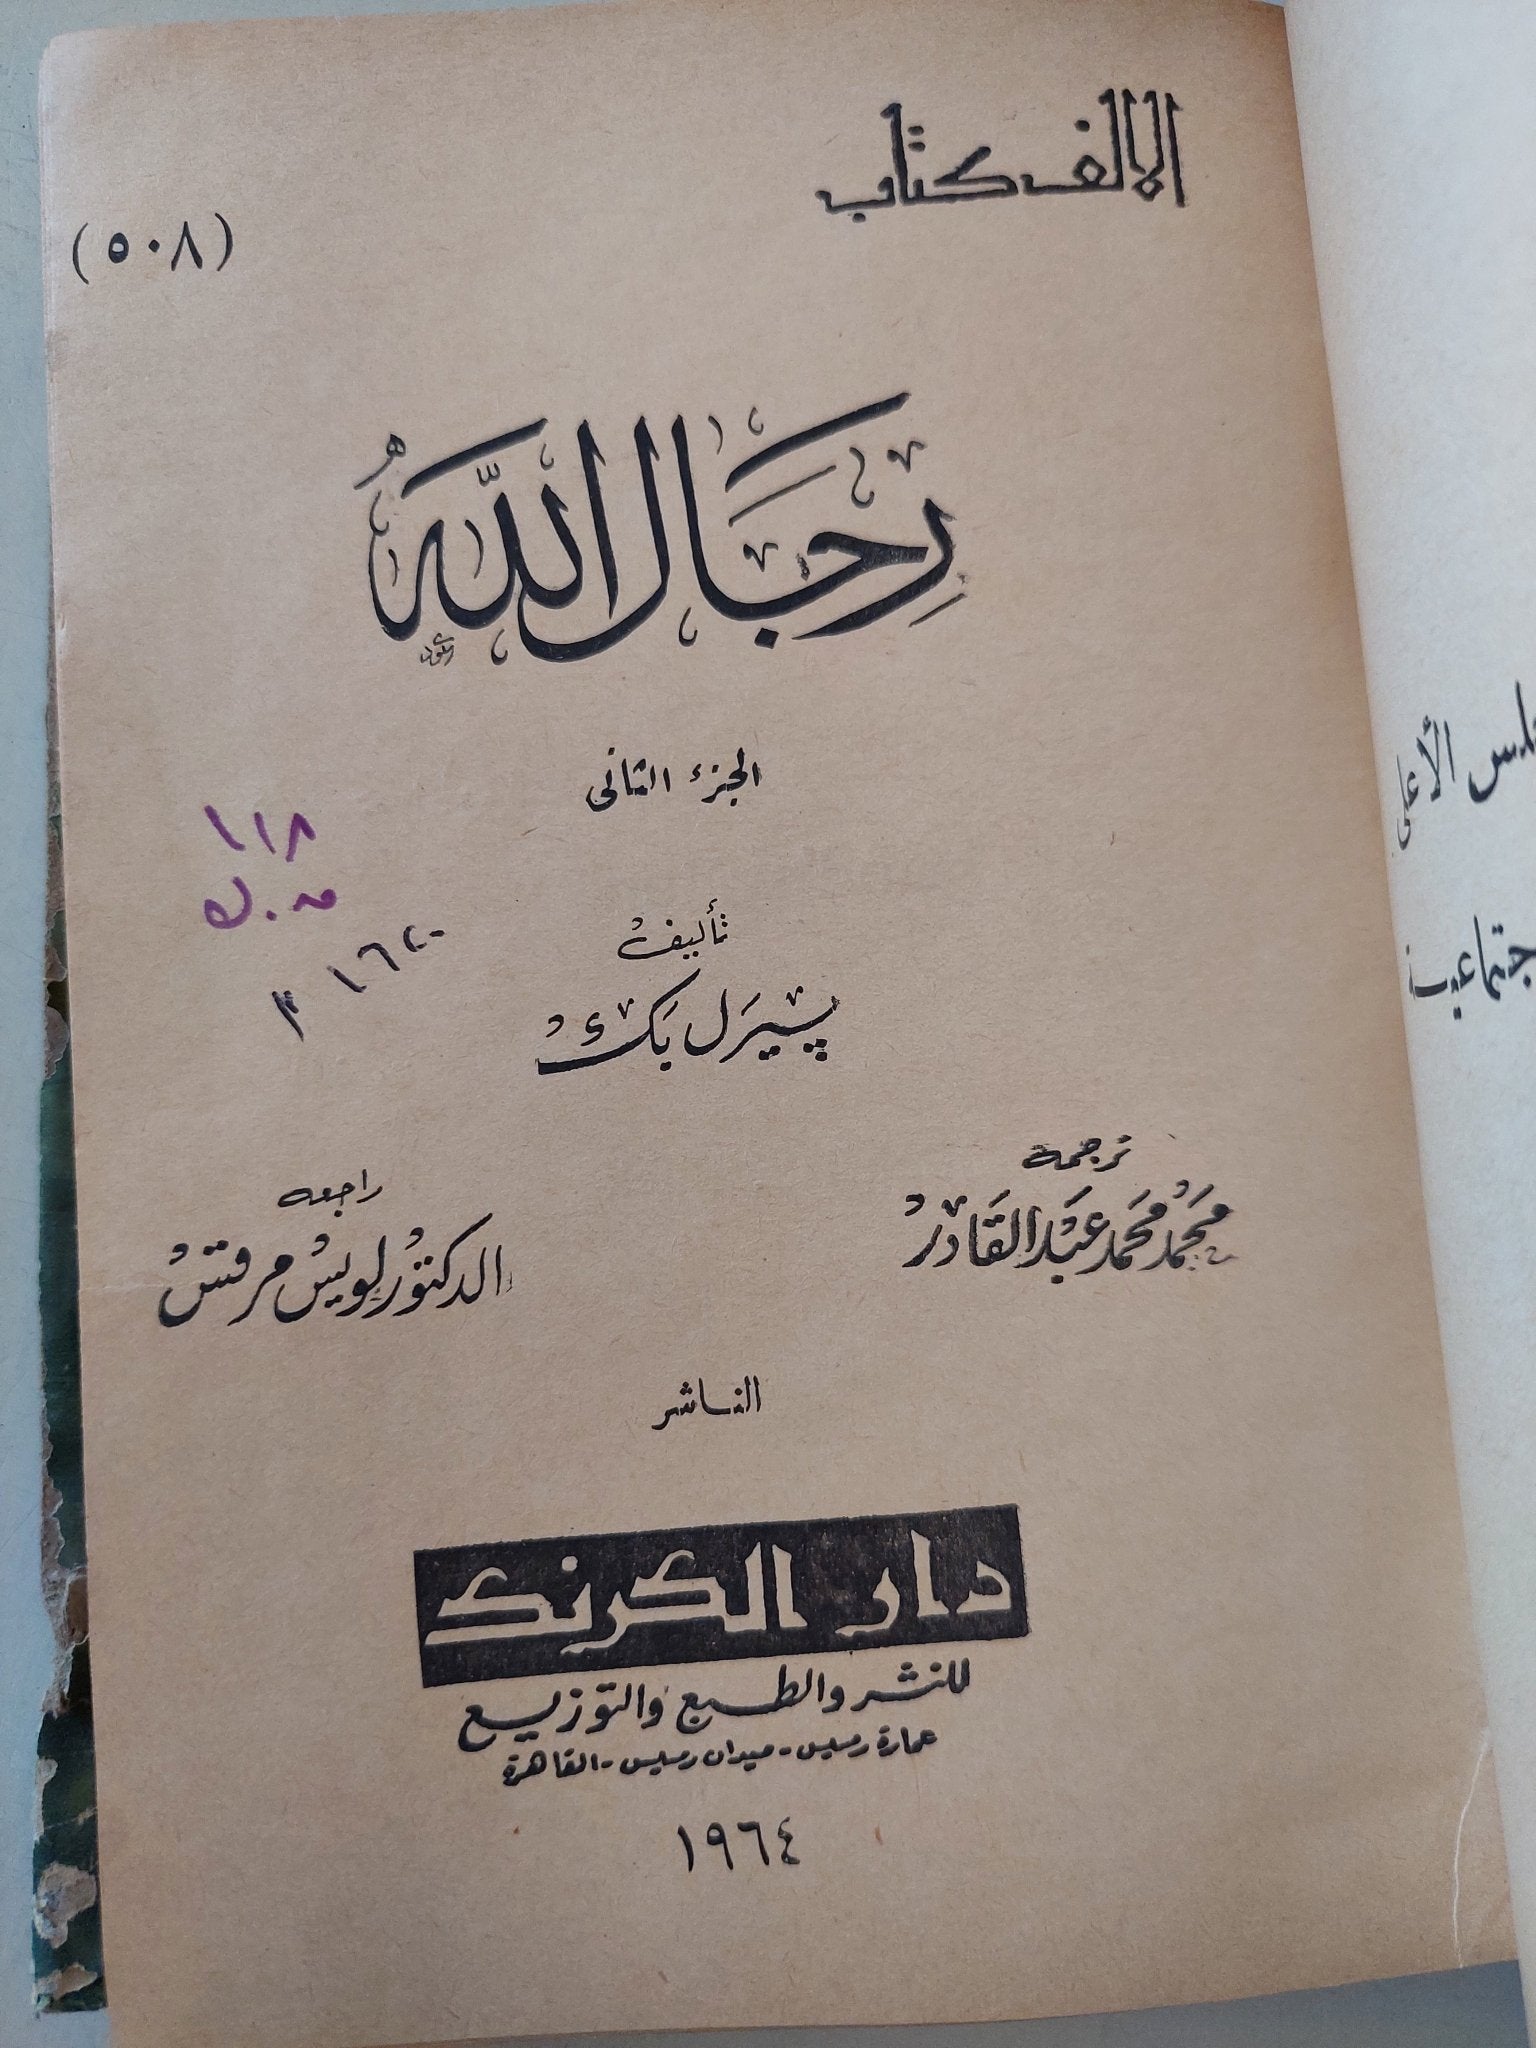 الالف كتاب
(٥٠٨)
رِجَال اللّٰه
الجزء الثانى
١١٨
تأليف
پيرل بَك
ترجمة
محمد محمد عبد القادر
راجعه
الدكتور لويس مرقس
الناشر
دار الكرنك
للنشر والطبع والتوزيع
عمارة رمسيس - ميدان رمسيس - القاهرة
١٩٦٤
الأعلى